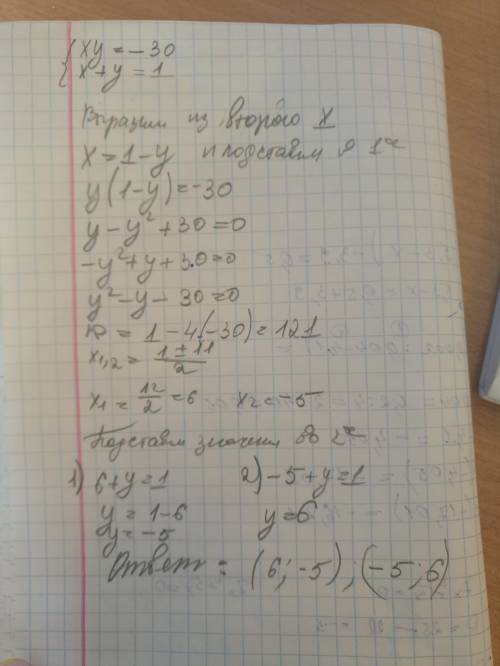 { xy = -30
x + y = 1
Выразим из второго x
x = 1 - y и подставим в 1ое
y(1 - y) = -30
y - y² + 30 = 0
-y² + y + 30 = 0
y² - y - 30 = 0
D = 1 - 4(-30) = 121
x₁,₂ = (1 ± 11)/2
x₁ = 12/2 = 6 x₂ = -5
Подставим значения во 2ое
1) 6 + y = 1 2) -5 + y = 1
y = 1 - 6 y = 6
y = -5
Ответ: (6; -5); (-5; 6)